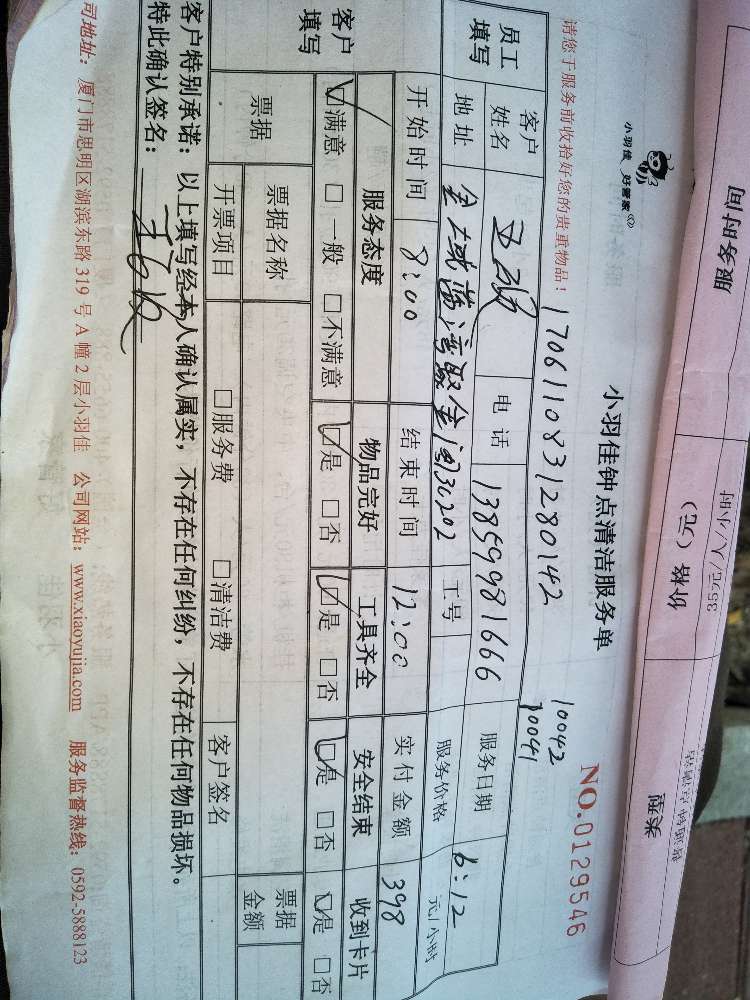 服务时间
价格（元）
35元/人/小时
类别
小羽佳 好管家
小羽佳钟点清洁服务单
NO.0129546
请您于服务前收拾好您的贵重物品！
1706110831280142
10042
10041
员工填写
客户姓名
电话
13859981666
服务日期
6:12
地址
工号
服务价格
元/小时
开始时间
8:00
结束时间
12:00
实付金额
398
客户填写
服务态度
物品完好
工具齐全
安全结束
收到卡片
☑满意 □一般 □不满意
☑是 □否
☑是 □否
☑是 □否
☑是 □否
票据
票据名称
票据金额
开票项目
□服务费 □清洁费
客户签名
客户特别承诺：以上填写经本人确认属实，不存在任何纠纷，不存在任何物品损坏。
特此确认签名：
司地址：厦门市思明区湖滨东路 319 号 A 幢 2 层小羽佳 公司网站：www.xiaoyujia.com 服务监督热线：0592-5888123